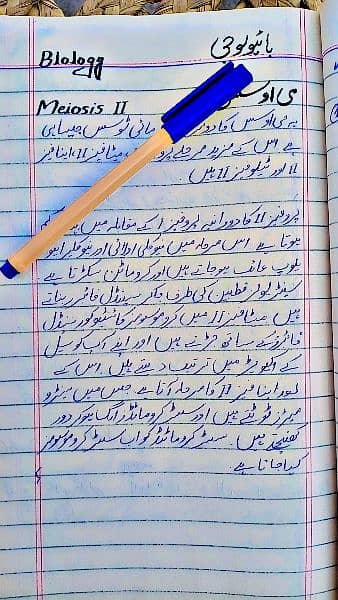 Biology بائیولوجی
Meiosis II می اوسس
یہ می اوسس کا دوسرا مائی ٹوسس جیسا ہی
ہے اس کے مزید مرحلے پروفیز میٹافیز II، اینافیز
II اور ٹیلوفیز II ہیں
پروفیز II کا دورانیہ پروفیز I کے مقابلہ میں
ہوتا ہے اس مرحلہ میں نیوکلی اولائی اور نیوکلیر
غائب ہوجاتے ہیں اور کرومائن سکڑتا ہے
سینٹریولز قطبین کی طرف جاکر سپنڈل فائبرز بناتے
ہیں میٹافیز II میں کروموسومز کا سپنڈل
فائبرز کے ساتھ جڑتے ہیں اور اپنے آپ کو سیل
کے میں ترتیب دیتے ہیں اس کے
بعد اینافیز II کا مرحلہ آتا ہے جس میں سینٹرو
میرز ٹوٹتے ہیں اور سسٹر کروماٹڈز الگ ہوکر دور
کھنچتے ہیں۔ سسٹر کروماٹڈ کو اب سسٹر کروموسومز
کہا جاتا ہے